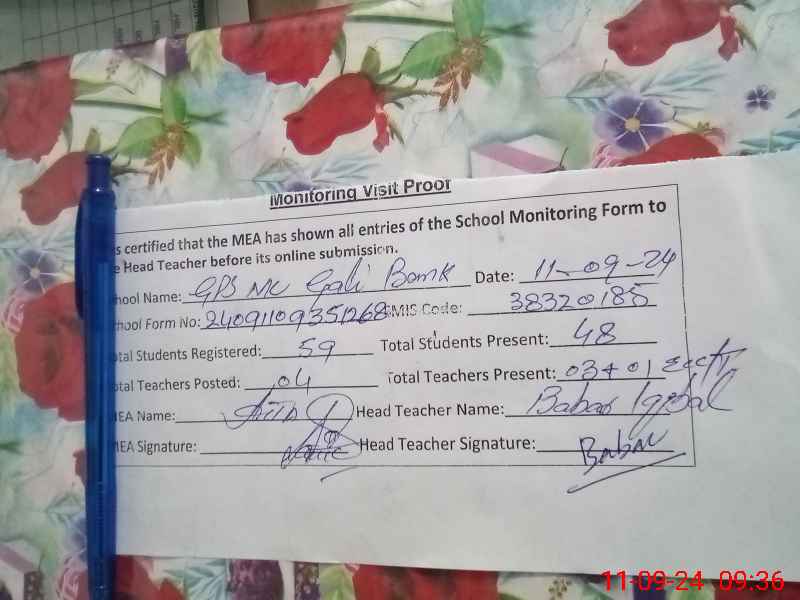 Monitoring Visit Proof
s certified that the MEA has shown all entries of the School Monitoring Form to
e Head Teacher before its online submission.
hool Name: GPS NK Gali Bank Date: 11-09-24
hool Form No: 24091109351268 SMIS Code: 38320185
otal Students Registered: 59 Total Students Present: 48
otal Teachers Posted: 04 Total Teachers Present: 03+01
MEA Name: Head Teacher Name: Babar Iqbal
MEA Signature: Head Teacher Signature: Babar
11-09-24 09:36